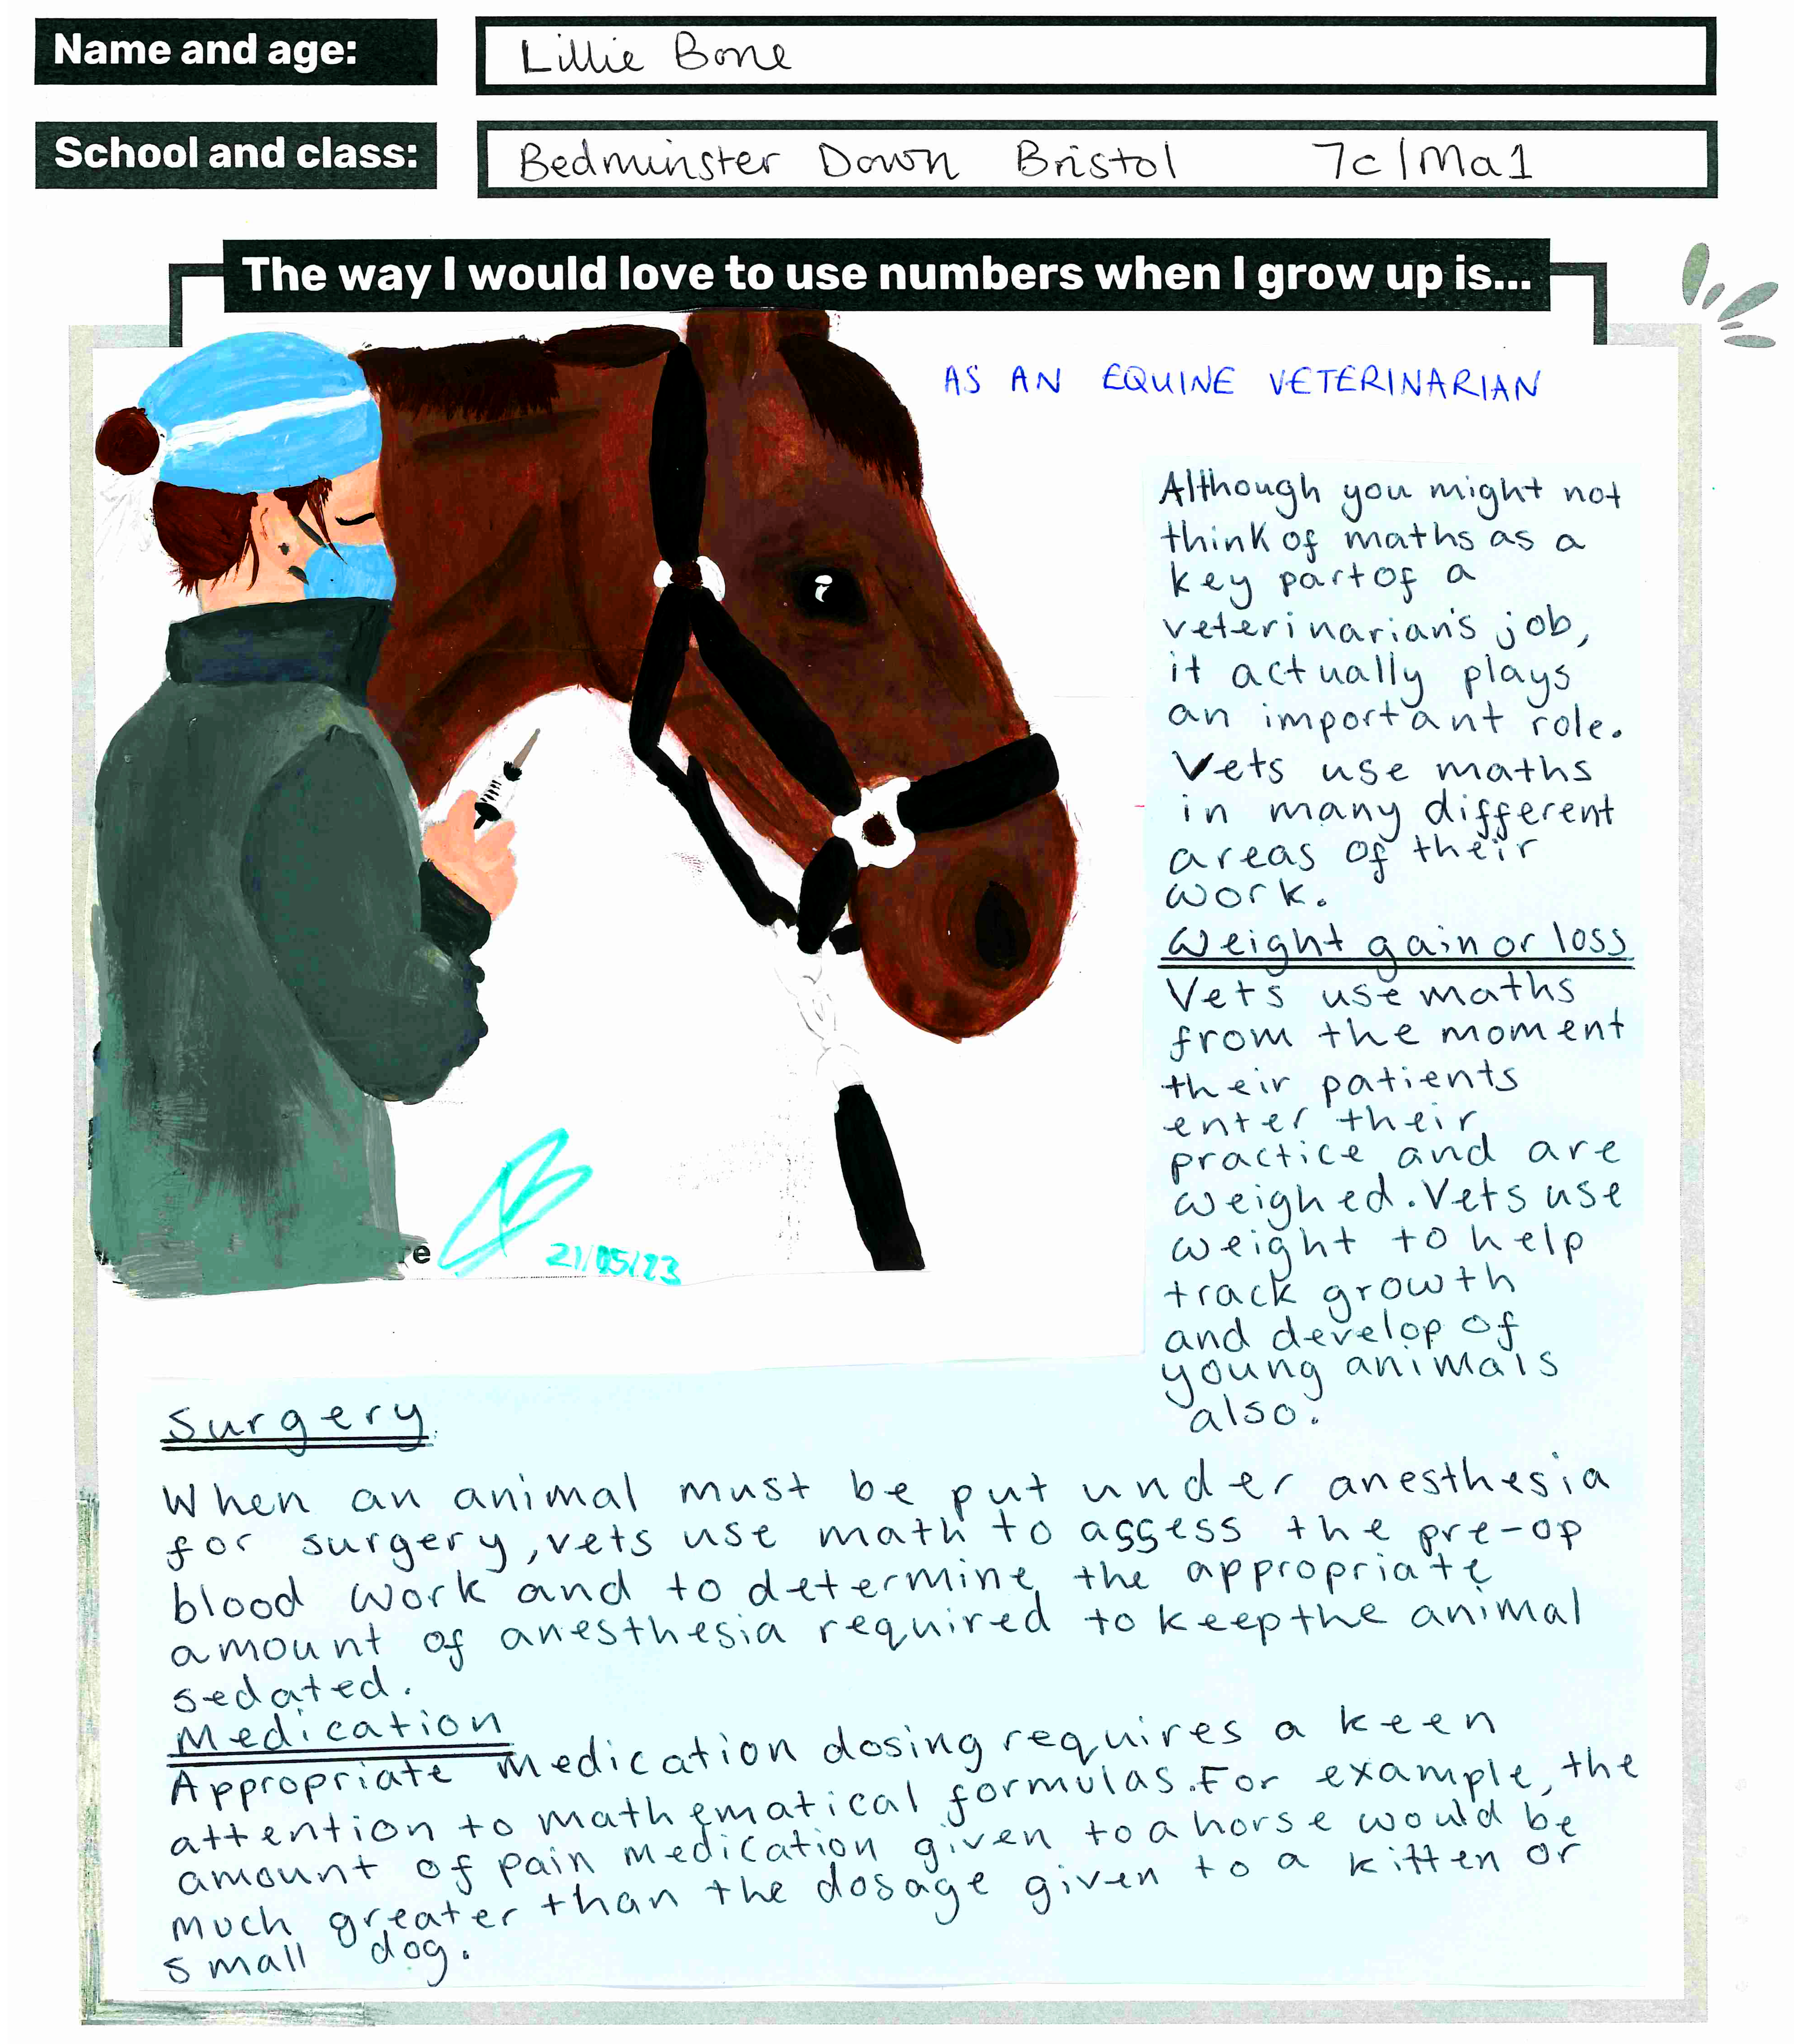 Name and age:
Lillie Bone
School and class:
Bedminster Down Bristol 7c/Ma1
The way I would love to use numbers when I grow up is...
AS AN EQUINE VETERINARIAN
Although you might not
think of maths as a
key part of a
veterinarian's job,
it actually plays
an important role.
Vets use maths
in many different
areas of their
work.
Weight gain or loss
Vets use maths
from the moment
their patients
enter their
practice and are
weighed. Vets use
weight to help
track growth
and develop of
young animals
also.
21/05/23
Surgery
When an animal must be put under anesthesia
for surgery, vets use math to assess the pre-op
blood work and to determine the appropriate
amount of anesthesia required to keep the animal
sedated.
Medication
Appropriate medication dosing requires a keen
attention to mathematical formulas. For example, the
amount of pain medication given to a horse would be
much greater than the dosage given to a kitten or
small dog.